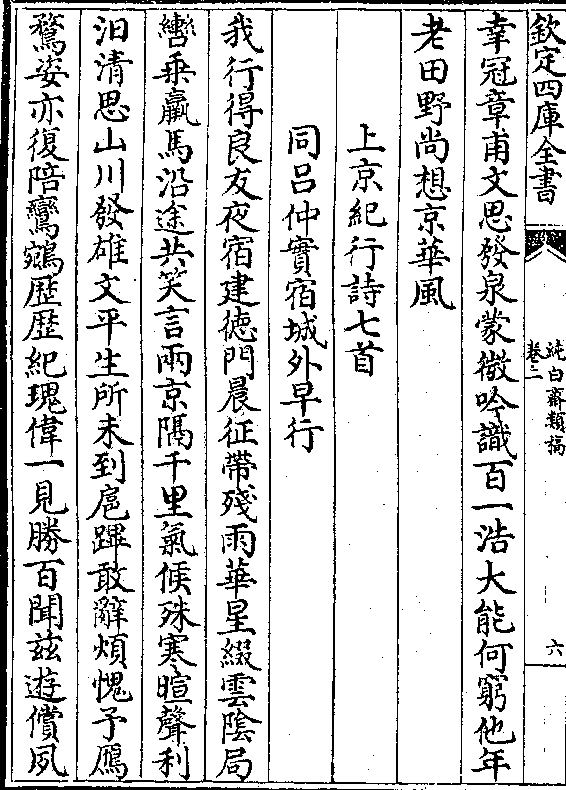 欽定四庫全書
純白齋類稿
卷二
六
幸冠章甫文思發泉蒙微吟識百一浩大能何窮他年
老田野尚想京華風
上京紀行詩七首
同呂仲實宿城外早行
我行得良友夜宿建德門晨征帶殘雨華星綴雲陰局
轡乗羸馬沿途共笑言兩京隔千里氣候殊寒暄聲利
汨清思山川發雄文平生所未到扈蹕敢辭煩愧予鴈
鶩姿亦復陪鸞鵷歴歴紀瑰偉一見勝百聞兹遊償夙